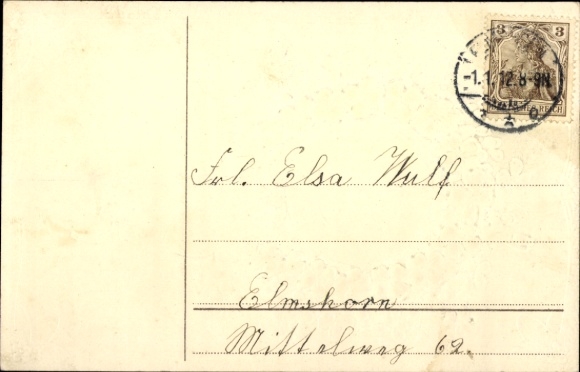 3 3
-1.1.12.8-9N
REICH
Frl. Elsa Wulf
Elmshorn
Mittelweg 62.